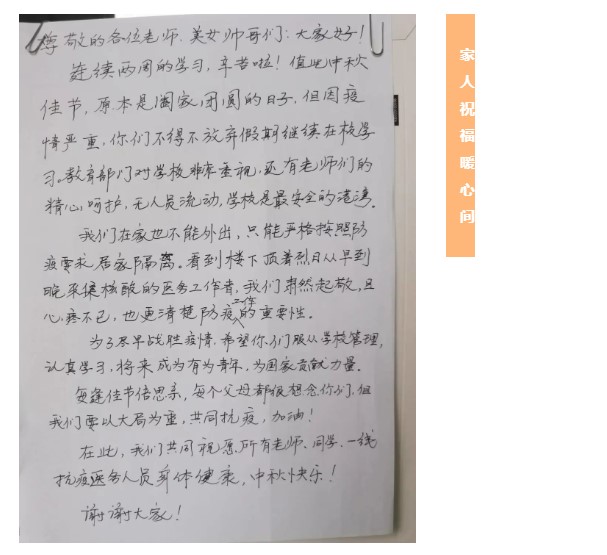 尊敬的各位老师、美女帅哥们：大家好！
连续两周的学习，辛苦啦！值此中秋
佳节，原本是阖家团圆的日子，但因疫
情严重，你们不得不放弃假期继续在校学
习。教育部门对学校非常重视，还有老师们的
精心呵护，无人员流动，学校是最安全的港湾。
我们在家也不能外出，只能严格按照防
疫要求居家隔离。看到楼下顶着烈日从早到
晚采集核酸的医务工作者，我们肃然起敬，且
心疼不已，也更清楚防疫工作的重要性。
为了尽早战胜疫情，希望你们服从学校管理，
认真学习，将来成为有为青年，为国家贡献力量。
每逢佳节倍思亲，每个父母都很想念你们，但
我们要以大局为重，共同抗疫，加油！
在此，我们共同祝愿所有老师、同学、一线
抗疫医务人员身体健康，中秋快乐！
谢谢大家！
家人祝福暖心间